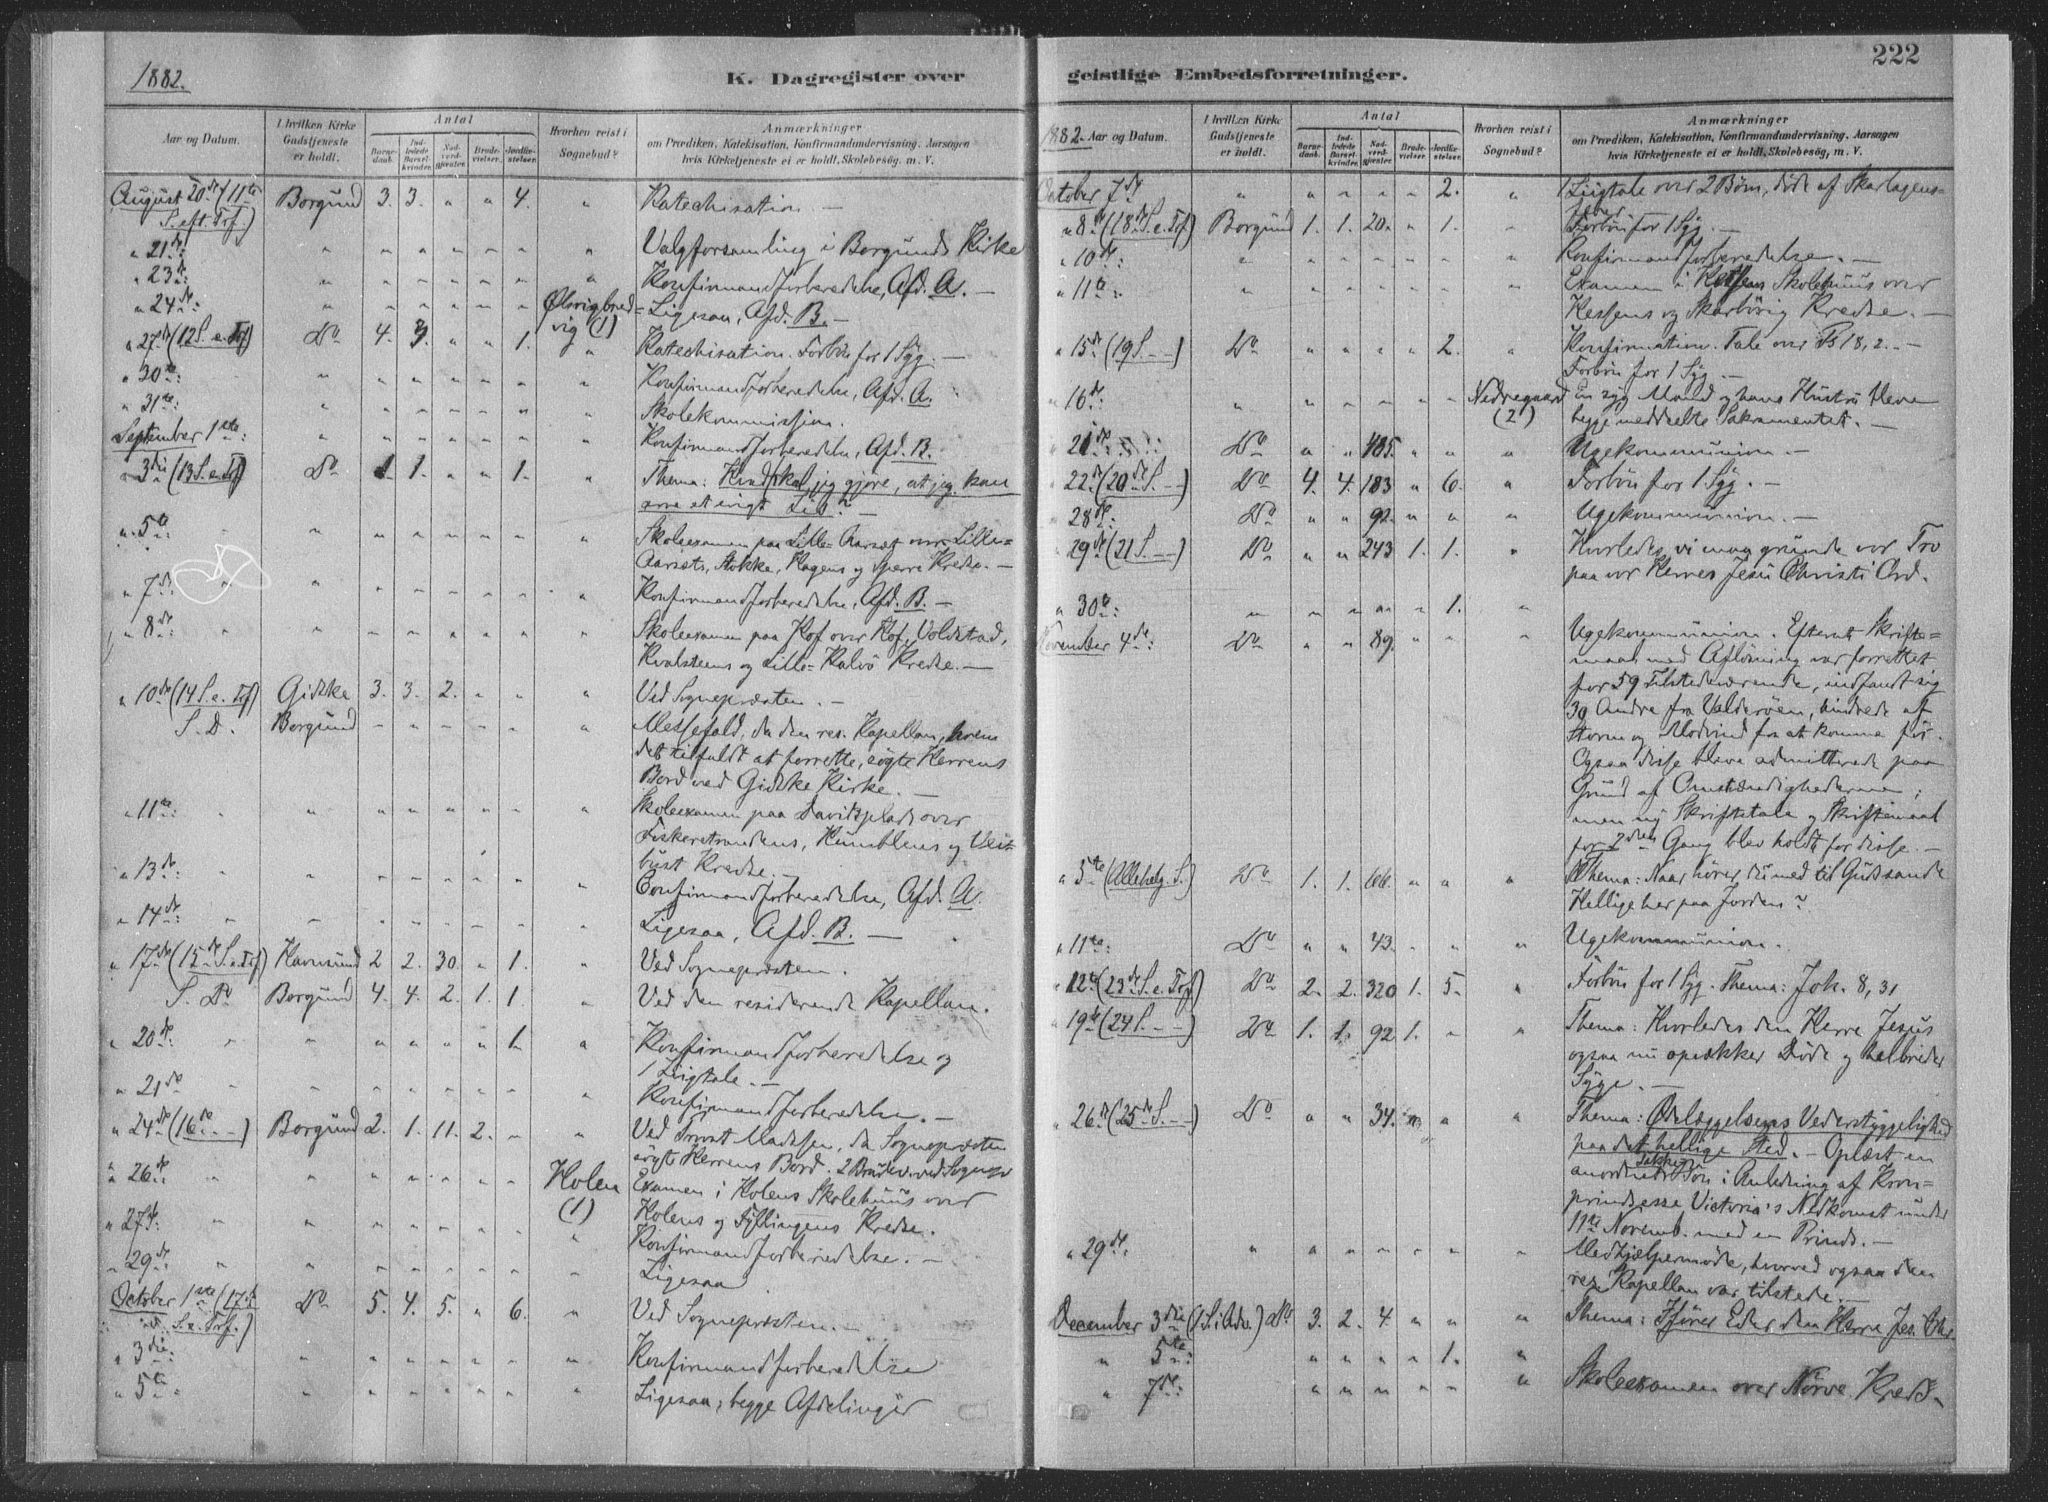 1882.
K. Dagregister over
Aar og Datum.
I hvilken Kirke Gudstjeneste er holdt.
Antal
Barnedaab.
Indledede Barselkvinder.
Nadverdgjæster.
Brudevielser.
Jordfæstelser.
Hvorhen reist i Sognebud?
Anmærkninger
om Prædiken, Katekisation, Konfirmandundervisning. Aarsagen
hvis Kirketjeneste ei er holdt, Skolebesøg, m. V.
August 20de (11te Borgund 3. 3. " " 4. " Katechisation. —
S. eft. Trf.)
" 21de: " " " " " " " Valgforsamling i Borgunds Kirke
" 23de " " " " " " " Konfirmandforberedelse, Afd. A. —
" 24de " " " " " " Ølsvigbredvig (1) Ligesaa, Afd. B. —
" 27de (12 S. e. Trf) Do 4. 3. " " 1. " Katechisation. Forbön for 1 Syg. —
" 30te: " " " " " " " Konfirmandforberedelse, Afd. A.
" 31te: " " " " " " " Skolekommission.
September 1ste: " " " " " " " Konfirmandforberedelse, Afd. B.
" 3die (13 S. e. Trf) Do 1. 1. " " 1. " Thema: Hvad skal jeg gjøre, at jeg kan
arve et evigt Liv? —
" 5te " " " " " " " Skoleexamen paa Lille-Aarsæt over Lille-
Aarsæts, Stokke, Hagens og Sperre Kredse. —
" 7de " " " " " " " Konfirmandforberedelse, Afd. B. —
" 8de: " " " " " " " Skoleexamen paa Hof over Hof, Voldstad,
Kvalsteens og Lille-Kalvö Kredse. —
" 10de (14 S. e. Trf) Gidske 3. 3. 2. " " " Ved Sognepræsten. —
S. D. Borgund " " " " " " Messefald, da den res. Kapellan, hvem
det tilfaldt at forrette, søgte Herrens
Bord ved Gidske Kirke. —
" 11te " " " " " " " Skoleexamen paa Davidsplads over
Fiskerstrandens, Humblens og Veibust Kredse. —
" 13de " " " " " " " Confirmandforberedelse, Afd. A.
" 14de: " " " " " " " Ligesaa, Afd. B. —
" 17de (15de S. e. Trf) Havnsund 2 2. 30. " 1. " Ved Sognepræsten.
S. Do Borgund 4. 4. 2. 1. 1. " Ved den residerende Kapellan.
" 20de " " " " " 1. " Konfirmandforberedelse og
1 Liigtale. —
" 21de " " " " " " " Konfirmandforberedelse. —
" 24de (16de — —) Borgund 2. 1. 11. 2. " " Ved Provst Madssen, da Sognepræsten
søgte Herrens Bord. 2 Brudev. ved Sognepr.
" 26de " " " " " " Holen (1) Examen i Holens Skolehuus over
Holens og Fyllingens Kredse.
" 27de " " " " " " " Konfirmandforberedelse. —
" 29de " " " " " " " Ligesaa
October 1ste (17de Do 5. 4. 5. " 6. " Ved Sognepræsten. —
S. e. Trf.)
" 3die: " " " " " " " Konfirmandforberedelse
" 5te " " " " " " " Ligesaa, begge Afdelinger
222
geistlige Embedsforretninger.
1882. Aar og Datum.
I hvilken Kirke Gudstjeneste er holdt.
Antal
Barnedaab.
Indledede Barselkvinder.
Nadverdgjæster.
Brudevielser.
Jordfæstelser.
Hvorhen reist i Sognebud?
Anmærkninger
om Prædiken, Katekisation, Konfirmandundervisning. Aarsagen
hvis Kirketjeneste ei er holdt, Skolebesøg, m. V.
October 7de " " " " " 2. " 1 Liigtale over 2 Börn, döde af Skarlagens-
feber
" 8de (18de S. e. Trf) Borgund 1. 1. 20. " 1. " Forbön for 1 Syg. —
" 10de: " " " " " " " Konfirmandforberedelse. —
" 11te: " " " " " " " Examen i Skolehuus over
Hessens og Skarbövig Kredse. —
" 15de (19 S. — —) Do " " " " 2. " Konfirmation. Tale over Ps 18, 2. —
Forbön for 1 Syg. —
" 16de: " " " " " " Nedregaard (2) En syg Mand og hans Hustru bleve
begge meddeelte Sakramentet. —
" 21de Do " " 185. " " " Ugekommunion. —
" 22de (20de S. — —) Do 4. 4. 183 " 6. " Forbön for 1 Syg. —
" 28de: Do " " 92. " " " Ugekommunion. —
" 29de (21 S. — —) Do " " 243 1. 1. " Hvorledes vi maa grunde vor Tro
paa vor Herres Jesu Christi Ord.
" 30te: " " " " " 1. "
November 4de: Do " " 89. " " " Ugekommunion. Efterat Skrifte-
maal med Aflösning var forrettet
for 59 Tilstedeværende, indfandt sig
30 Andre fra Valderöen, hindrede af
Storm og Modvind fra at komme för.
Ogsaa disse bleve admitterede paa
Grund af Omstændighederne;
men ny Skriftetale og Skriftemaal
for 2den Gang blev holdt for disse. —
" 5te (Allehelg. S.) Do 1. 1. 66. " " " Thema: Naar hörer du med til Guds sande
Hellige her paa Jorden?
" 11te: Do " " 43. " " " Ugekommunion.
" 12te (23de S. e. Trf) Do 2. 2. 320 1. 5. " Forbön for 1 Syg. Thema: Joh. 8, 31
" 19de (24 S. — —) Do 1. 1. 92. 1. " " Thema: Hvorledes den Herre Jesus
ogsaa nu opvækker Döde og helbreder
Syge. —
" 26de (25de S. — —) Do " " 34. " " " Thema: Ödelæggelsens Vederstyggelighed
paa det hellige Sted. — Oplæst en
anordnet Takkebön i Anledning af Kron-
prindsesse Victoria's Nedkomst under
11te Novemb. med en Prinds. —
" 29de: " " " " " " " Medhjælpermöde, hvorved ogsaa den
res. Kapellan var tilstede. —
December 3die (1 S. i Adv.) Do 3. 2. 4. " " " Thema: Ifører Eder den Herre Jes. Chr.
" 5te: " " " " 1. "
" 7de: " " " " " " Skoleexamen over Nörve Kreds.